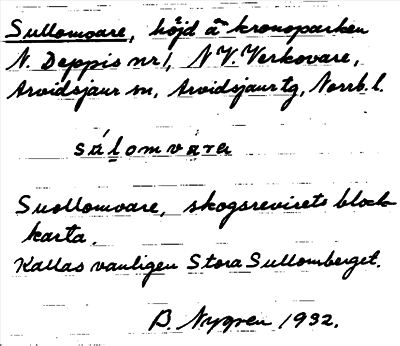 Sullomvare, höjd å kronoparken
N. Deppis nr 1, N V. Verkovare,
Arvidsjaur sn, Arvidsjaur tg, Norrb. l.
súlomvárɐ
Suollomvare, skogsrevirets block-
karta.
Kallas vanligen Stora Sullomberget.
B. Nygren 1932.